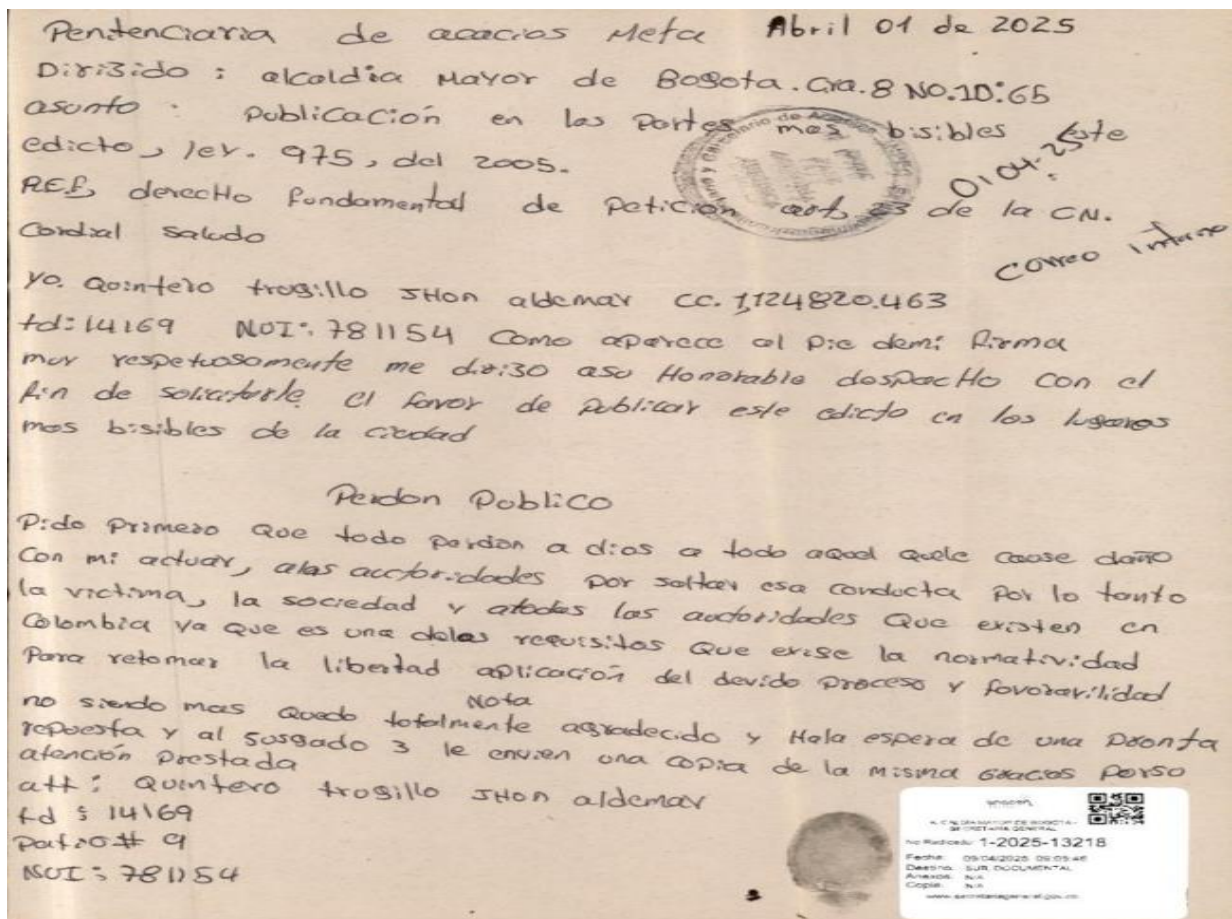 Penitenciaria de acacios Meta Abril 01 de 2025
Dirigido : alcaldia Mayor de Bogota. Cra. 8 No. 10:65
asunto : Publicación en las Partes mas bisibles Este
edicto, ley. 975, del 2005.
REF, derecHo fundamental de Petición art, 23 de la CN.
01 04-25
Cordial saludo
correo interno
yo. Quintero trogillo JHon aldemar cc. 1,124820.463
td: 14169 NUI: 781154 Como aparece al pie demi firma
muy respetuosamente me dirigo asu Honorable despacHo con el
fin de solicitarle el favor de Publicar este edicto en los lugares
mas bisibles de la ciudad
Perdon Publico
Pido Primero Que todo perdon a dios a todo aquel quele cause daño
Con mi actuar, alas auctoridades por saltar esa conducta Por lo tanto
la victima, la sociedad y atodas las auctoridades Que existen en
Colombia ya Que es una delas requisitos Que exige la normatividad
Para retomar la libertad aplicación del devido Proceso y favoravilidad
Nota
no siendo mas Quedo totalmente agradecido y Hala espera de una Pronta
repuesta y al Jusgado 3 le envien una copia de la misma Gracias porso
atención Prestada
att: Quintero trogillo JHon aldemar
td : 14169
Patio # 9
NUI : 781154
ALCALDIA MAYOR DE BOGOTA -
SECRETARIA GENERAL
No Radicado: 1-2025-13218
Fecha: 09/04/2025 09:09:46
Destino: SUB. DOCUMENTAL
Anexos: N/A
Copia: N/A
www.secretariageneral.gov.co